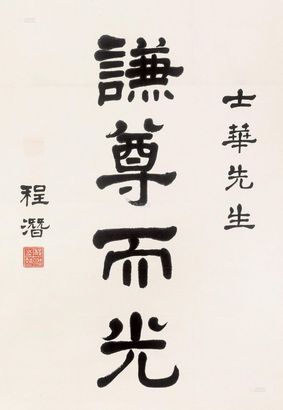 士華先生
謙尊而光
程潛